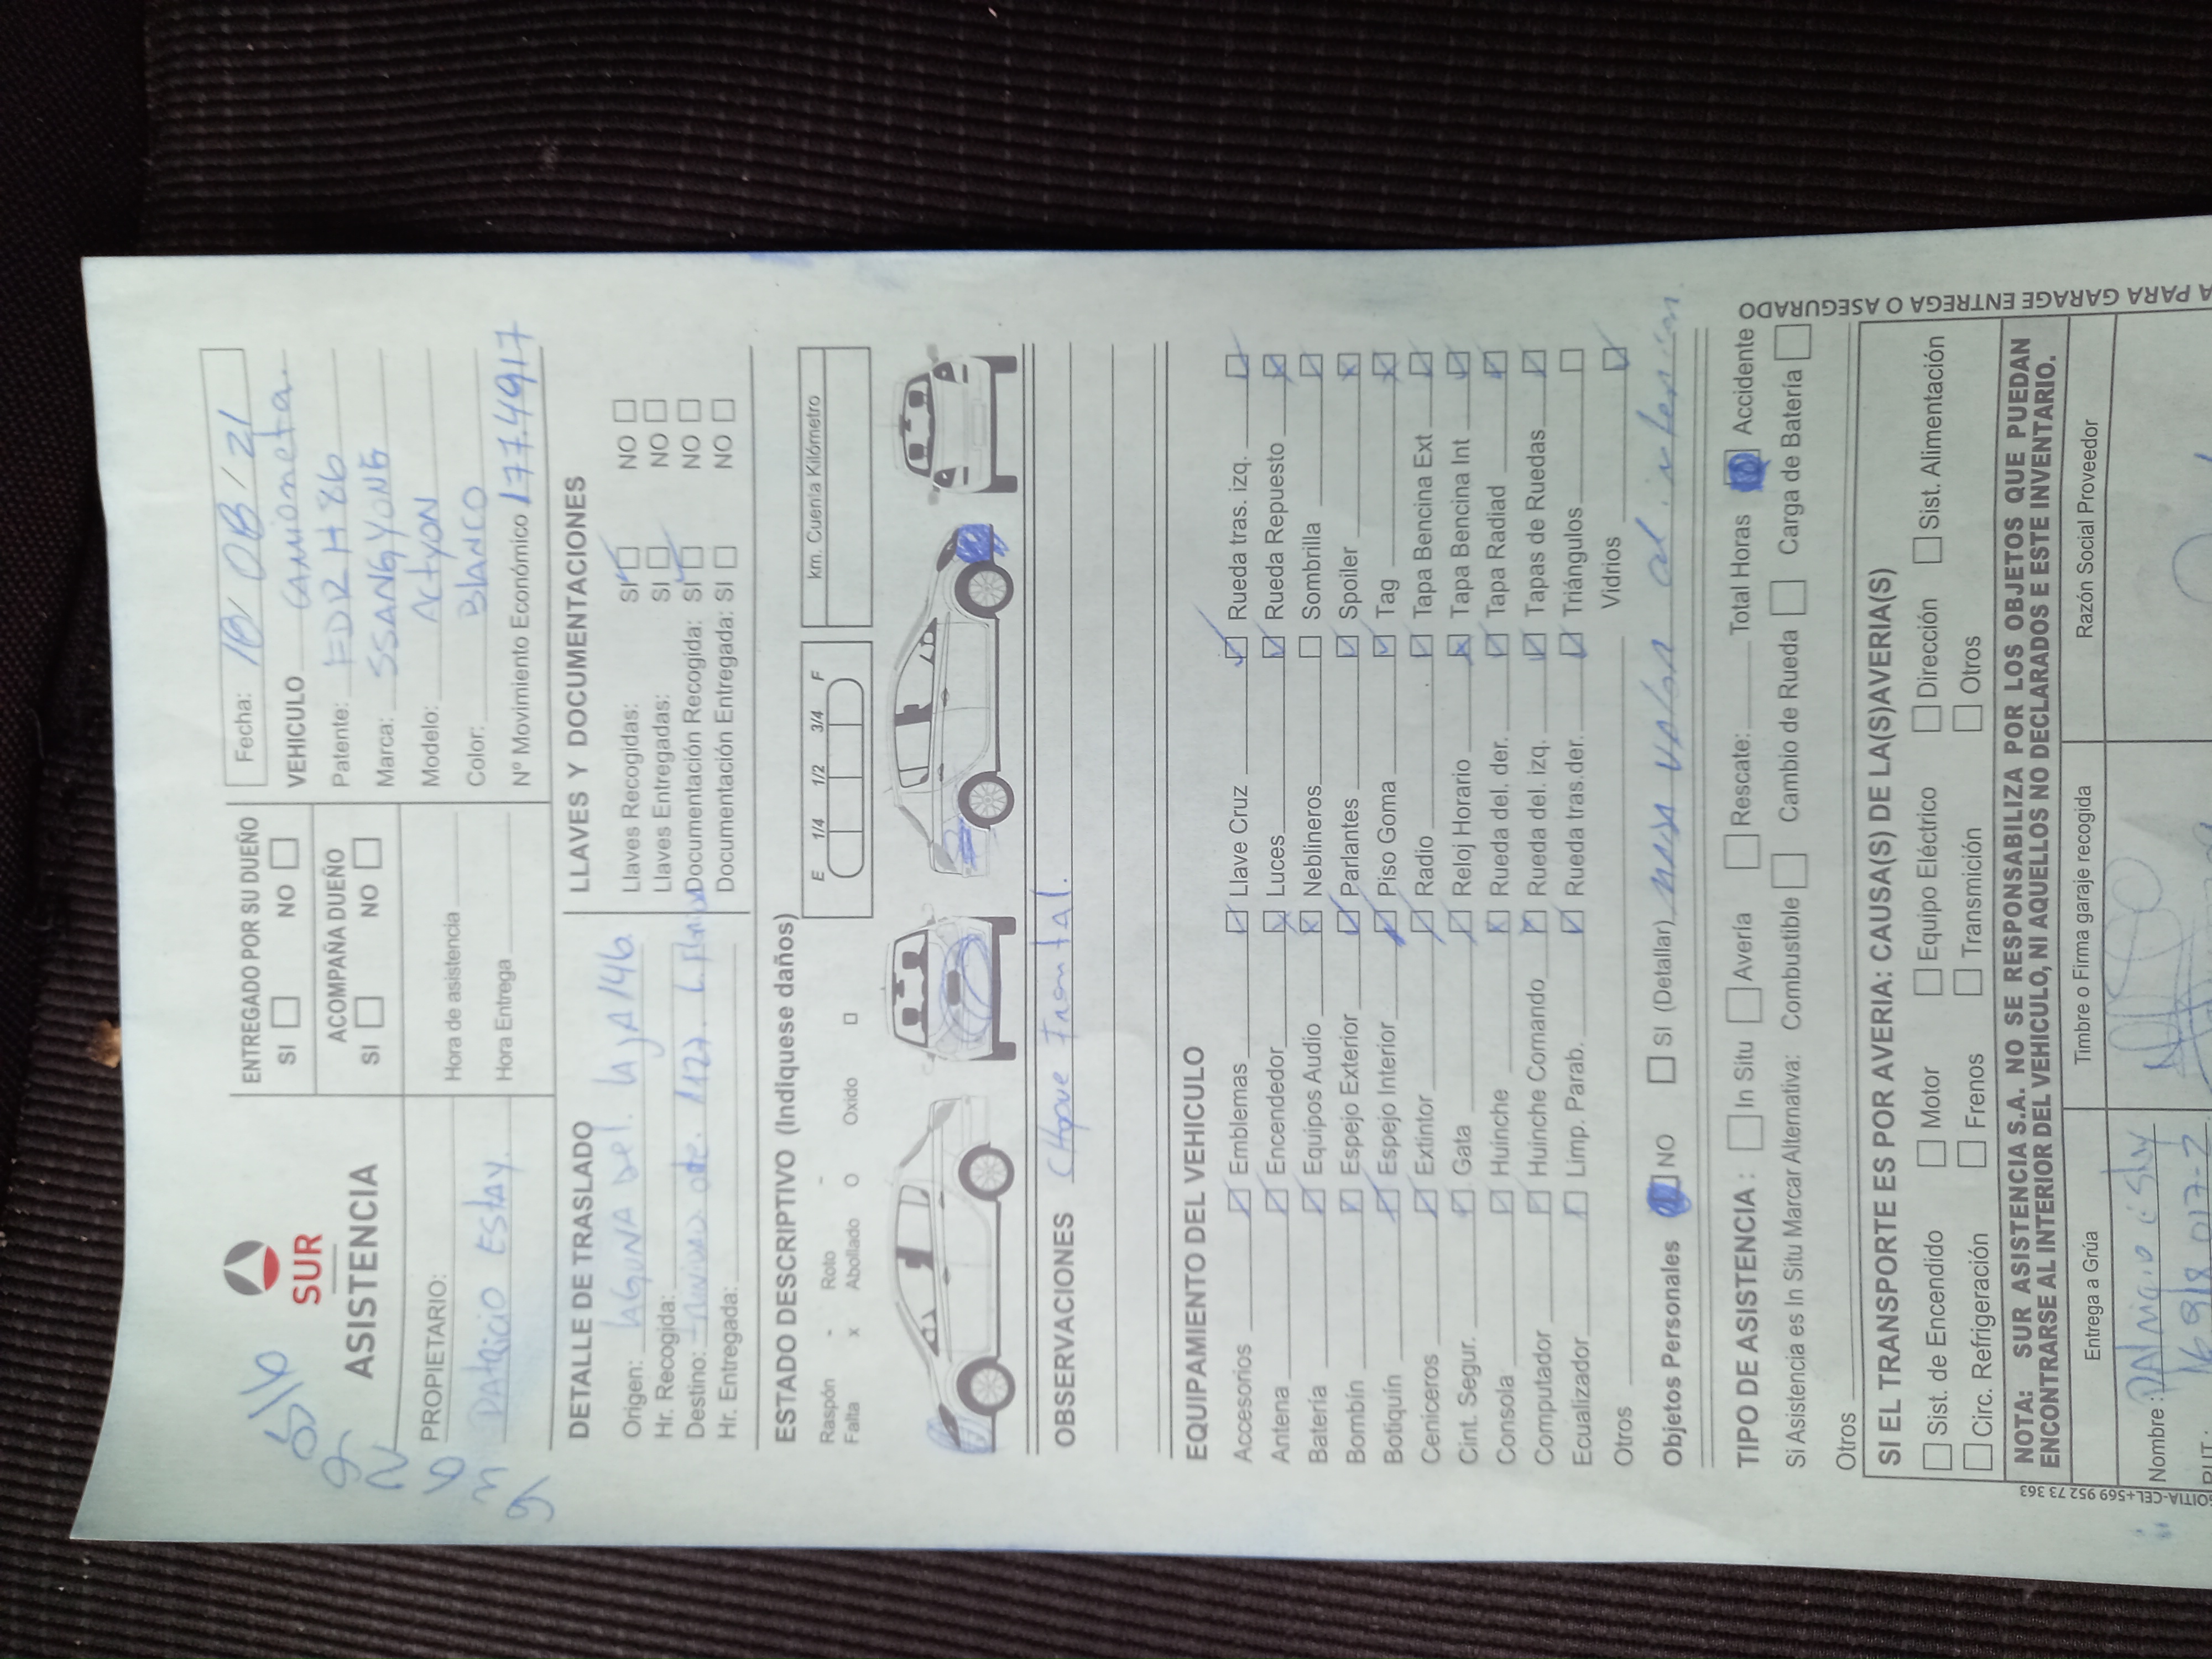 SUR
ASISTENCIA
ENTREGADO POR SU DUEÑO
SI NO
ACOMPAÑA DUEÑO
SI NO
Fecha: / 21
VEHICULO camioneta.
Patente:
Marca: SSANGYONG
Modelo: ActyoN
Color: BlANCO
Nº Movimiento Económico 177.4917
PROPIETARIO:
Patricio Estay.
Hora de asistencia
Hora Entrega
DETALLE DE TRASLADO
Origen: lAgunA Del. lAjA 146.
Hr. Recogida:
Destino: 1127.
Hr. Entregada:
LLAVES Y DOCUMENTACIONES
Llaves Recogidas: SI NO
Llaves Entregadas: SI NO
Documentación Recogida: SI NO
Documentación Entregada: SI NO
ESTADO DESCRIPTIVO (Indiquese daños)
Raspón - Roto -
Falta x Abollado O Oxido □
E 1/4 1/2 3/4 F
km. Cuenta Kilómetro
OBSERVACIONES Choque Frontal.
EQUIPAMIENTO DEL VEHICULO
Accesorios Emblemas Llave Cruz Rueda tras. izq.
Antena Encendedor Luces Rueda Repuesto
Batería Equipos Audio Neblineros Sombrilla
Bombín Espejo Exterior Parlantes Spoiler
Botiquín Espejo Interior Piso Goma Tag
Ceniceros Extintor Radio Tapa Bencina Ext
Cint. Segur. Gata Reloj Horario Tapa Bencina Int
Consola Huinche Rueda del. der. Tapa Radiad
Computador Huinche Comando Rueda del. izq. Tapas de Ruedas
Ecualizador Limp. Parab. Rueda tras.der. Triángulos
Otros Vidrios
Objetos Personales NO SI (Detallar) al interior.
TIPO DE ASISTENCIA : In Situ Avería Rescate: Total Horas Accidente
Si Asistencia es In Situ Marcar Alternativa: Combustible Cambio de Rueda Carga de Batería
Otros
SI EL TRANSPORTE ES POR AVERIA: CAUSA(S) DE LA(S)AVERIA(S)
Sist. de Encendido Motor Equipo Eléctrico Dirección Sist. Alimentación
Circ. Refrigeración Frenos Transmición Otros
NOTA: SUR ASISTENCIA S.A. NO SE RESPONSABILIZA POR LOS OBJETOS QUE PUEDAN
ENCONTRARSE AL INTERIOR DEL VEHICULO, NI AQUELLOS NO DECLARADOS E ESTE INVENTARIO.
Entrega a Grúa Timbre o Firma garaje recogida Razón Social Proveedor
Nombre :
RUT :
A PARA GARAGE ENTREGA O ASEGURADO
OITIA-CEL+569 952 73 363